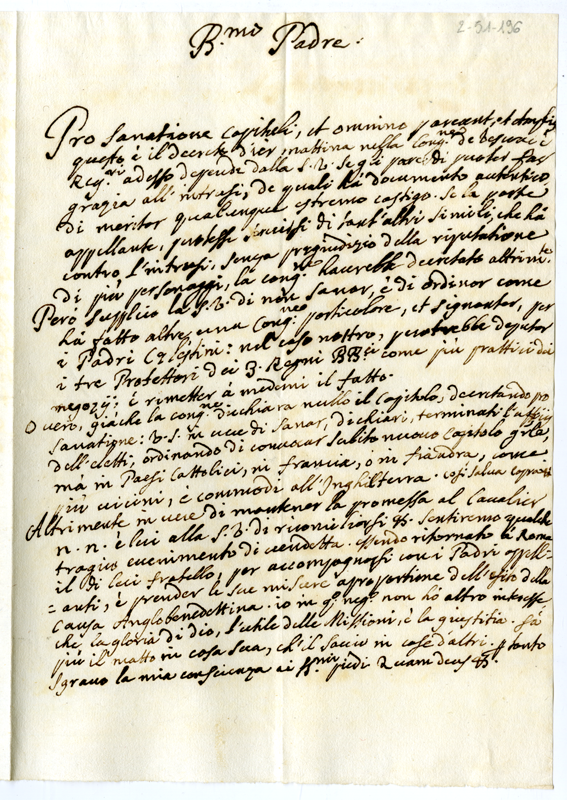 2-91-196
R.mo Padre:
Pro Sanatione Capituli, et omnino pareant, et
questo è il decreto d'ier mattina nella Cong.ne de Vescovi è
Reg.ri adesso depende dalla S. V. se gli pare di poter far
gratia all' intrusi, de quali hà documento autentico
di meritar qualunque estremo castigo. Se la parte
appellante, potesse servirsi di tant' altri simili, che hà
contro l'intrusi, senza pregiudizio della riputatione
di più personaggi, la cong.ne haverebbe decretato altrim.te
Però supplico la S. V. di non sanar, è di ordinar come
hà fatto altre, una Cong.ne particolare, et signanter, per
i Padri Celestini: nel caso nostro, potrebbe deputar
i tre Protettori dei 3. Regni come più prattici dei
negozij, è rimetter à medemi il fatto.
O vero, già che la cong.ne dichiara nullo il Capitolo, decretando pro
sanatione: V. S. in vece di sanar, dichiari, terminati l'
dell' eletti, ordinando di convocar subito nuovo Capitolo g'rle,
ma in Paesi Cattolici, in francia, ò in fiandra, come
più vicini, e commodi all' Inghilterra. così salva
Altrimente in vece di mantener la promessa al Cavalier
n. n. è lei alla S. V. di riconciliarsi &. sentiremo qualche
tragico evenimento di vendetta. essendo ritornato à Roma
il di leci fratello, per accompagnarsi con i Padri appell=
=anti, è prender le sue misure à proportione dell' esito della
causa Anglobenedettina. io in q. neg.o non hò altro interesse
che, la gloria di Dio, l'utile delle Missioni, è la giustitia. sà
più il matto in casa sua, ch' il savio in case d'altri. p tanto
sgravo la mia conscienza ai piedi quam deus &.